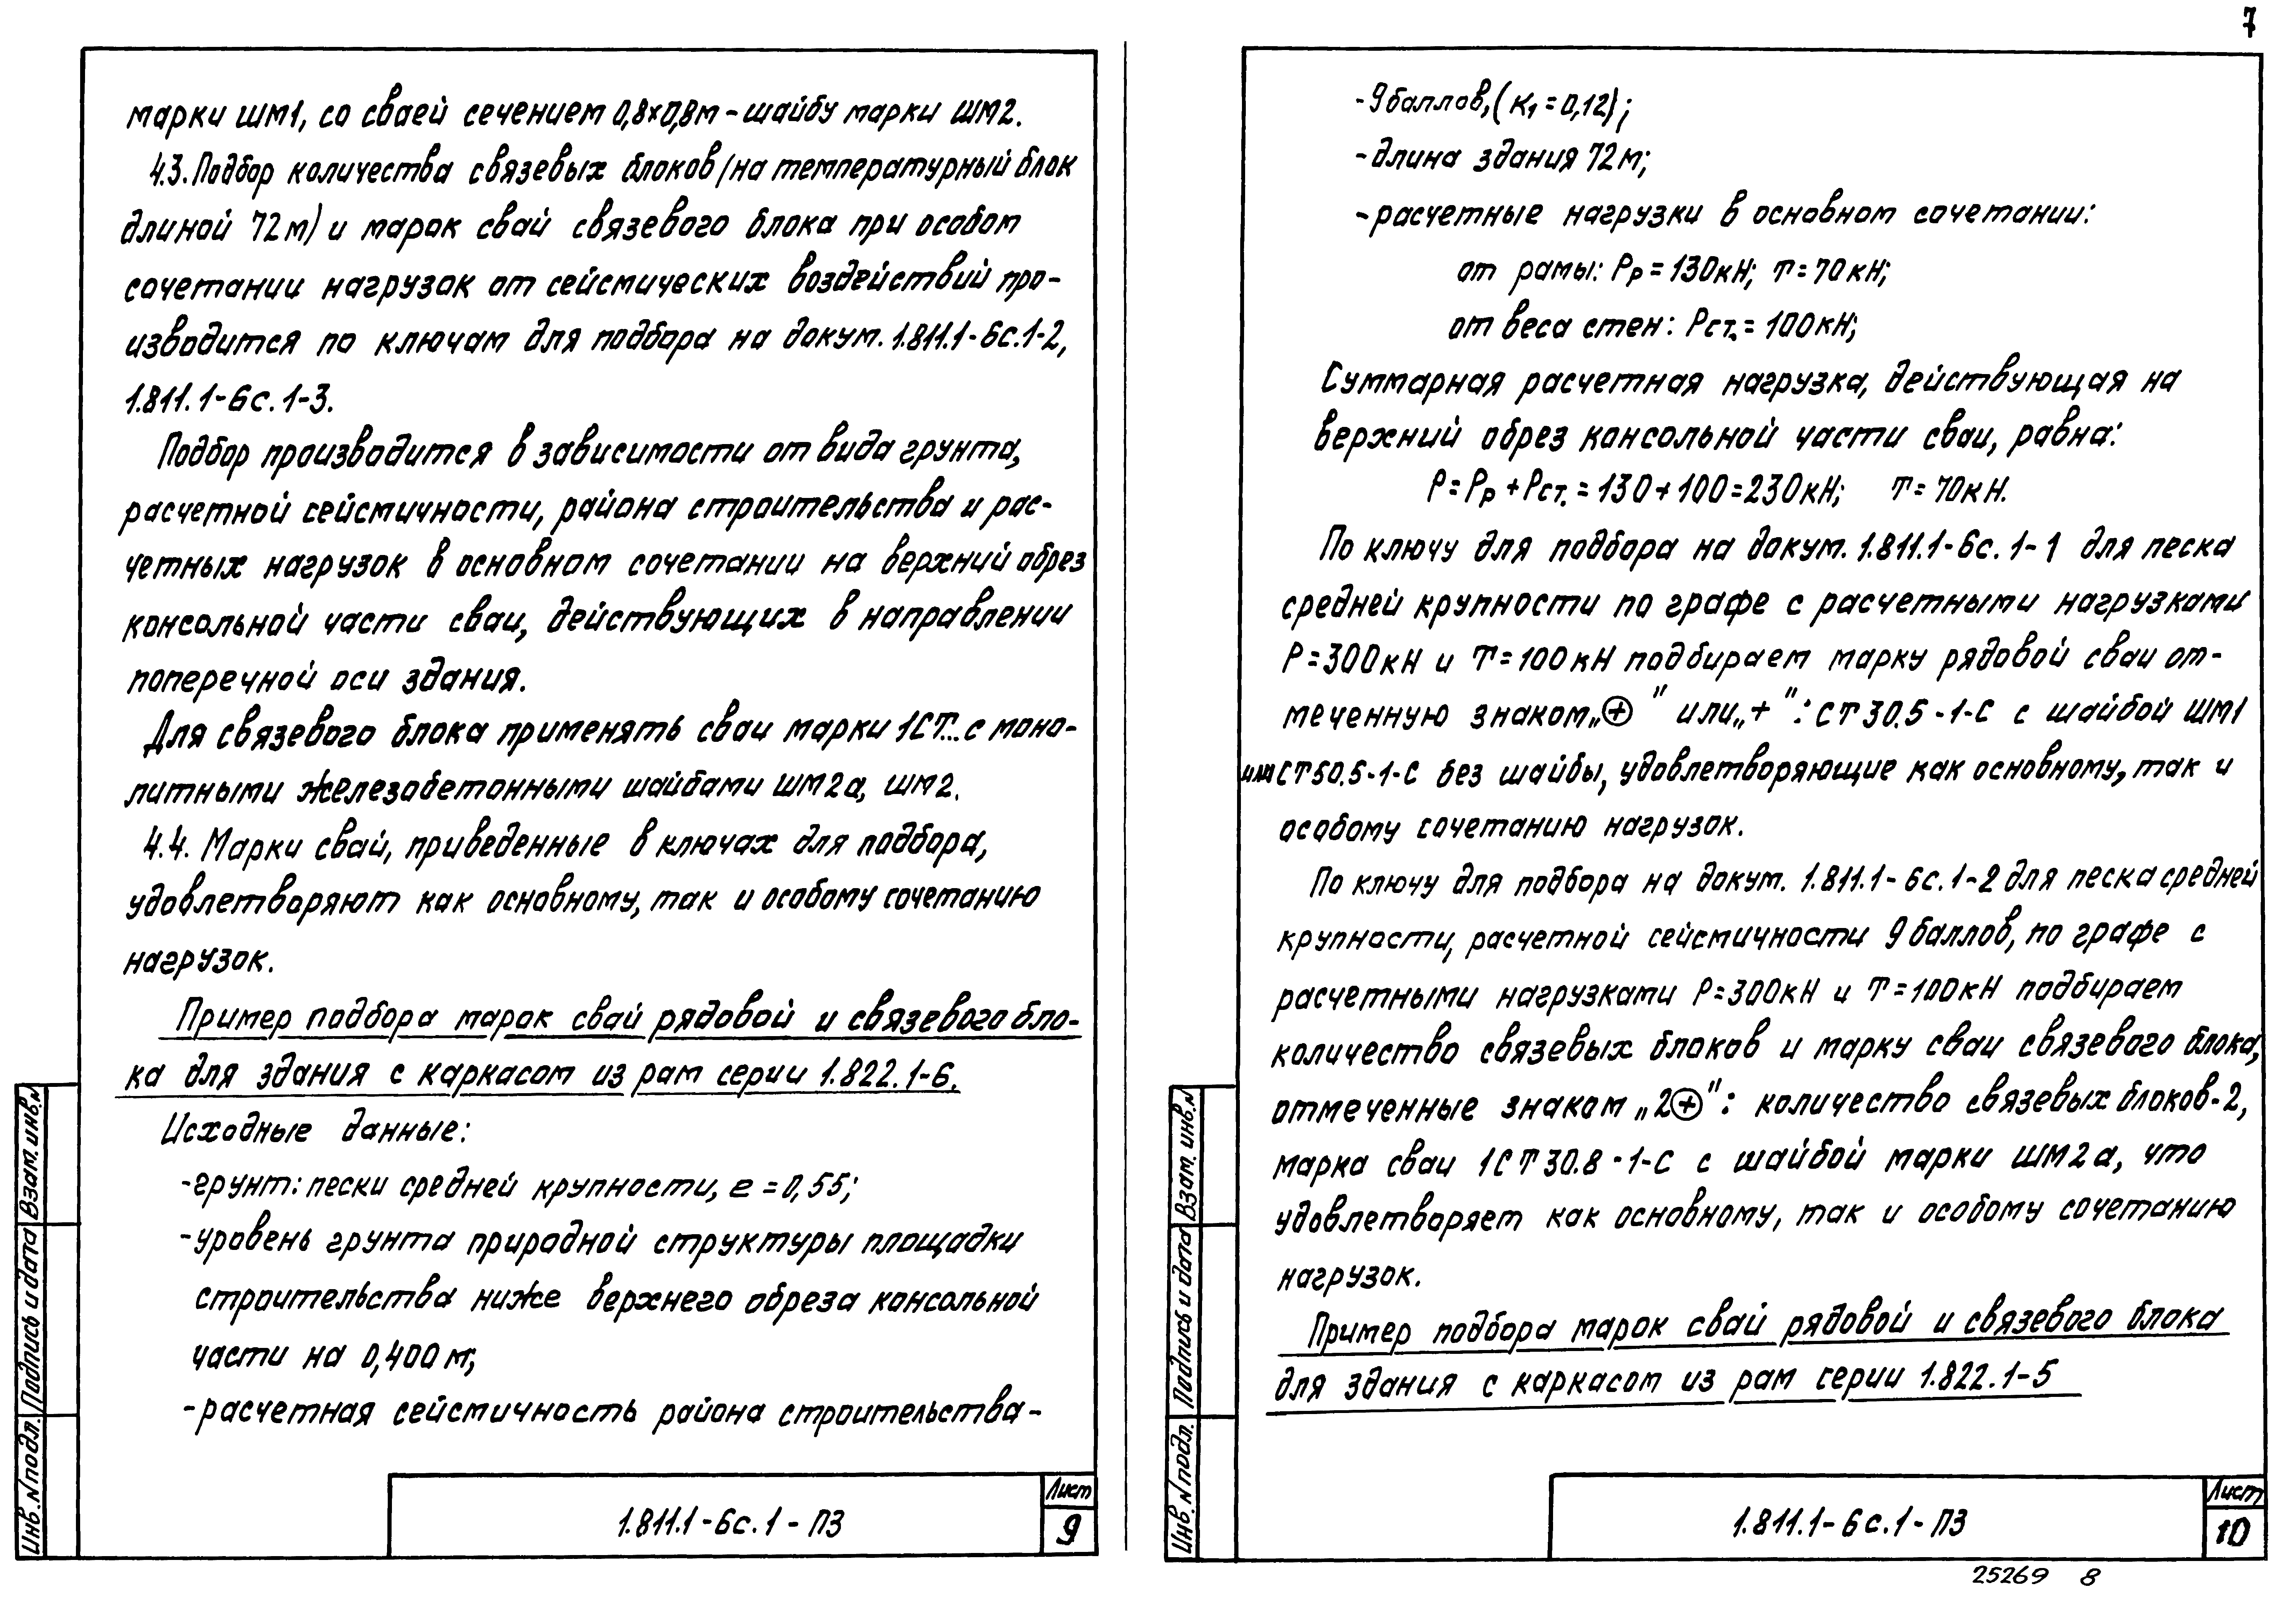 7
марки ШМ1, со сваей сечением 0,8×0,8м – шайбу марки ШМ2.
4.3. Подбор количества связевых блоков (на температурный блок
длиной 72м) и марок свай связевого блока при особом
сочетании нагрузок от сейсмических воздействий про-
изводится по ключам для подбора на докум. 1.811.1-6с.1-2,
1.811.1-6с.1-3.
Подбор производится в зависимости от вида грунта,
расчетной сейсмичности, района строительства и рас-
четных нагрузок в основном сочетании на верхний обрез
консольной части сваи, действующих в направлении
поперечной оси здания.
Для связевого блока применять сваи марки 1СТ... с моно-
литными железобетонными шайбами ШМ2а, ШМ2.
4.4. Марки свай, приведенные в ключах для подбора,
удовлетворяют как основному, так и особому сочетанию
нагрузок.
Пример подбора марок свай рядовой и связевого бло-
ка для здания с каркасом из рам серии 1.822.1-6.
Исходные данные:
-грунт: пески средней крупности, e = 0,55;
-уровень грунта природной структуры площадки
строительства ниже верхнего обреза консольной
части на 0,400м;
-расчетная сейсмичность района строительства-
1.811.1-6с.1-ПЗ
Лист
9
Инв. № подл. Подпись и дата Взам. инв. №
-9 баллов, (К1 = 0,12);
-длина здания 72м;
-расчетные нагрузки в основном сочетании:
от рамы: Рр = 130кН; Т = 70кН;
от веса стен: Рст. = 100кН;
Суммарная расчетная нагрузка, действующая на
верхний обрез консольной части сваи, равна:
Р = Рр + Рст. = 130 + 100 = 230кН; Т = 70кН.
По ключу для подбора на докум. 1.811.1-6с.1-1 для песка
средней крупности по графе с расчетными нагрузками
Р = 300кН и Т = 100кН подбираем марку рядовой сваи от-
меченную знаком „⊕" или „+": СТ30.5-1-С с шайбой ШМ1
или СТ50.5-1-С без шайбы, удовлетворяющие как основному, так и
особому сочетанию нагрузок.
По ключу для подбора на докум. 1.811.1-6с.1-2 для песка средней
крупности, расчетной сейсмичности 9 баллов, по графе с
расчетными нагрузками Р=300кН и Т=100кН подбираем
количество связевых блоков и марку сваи связевого блока,
отмеченные знаком „2⊕": количество связевых блоков-2,
марка сваи 1СТ30.8-1-С с шайбой марки ШМ2а, что
удовлетворяет как основному, так и особому сочетанию
нагрузок.
Пример подбора марок свай рядовой и связевого блока
для здания с каркасом из рам серии 1.822.1-5
1.811.1-6с.1-ПЗ
Лист
10
Инв. № подл. Подпись и дата Взам. инв. №
25269 8